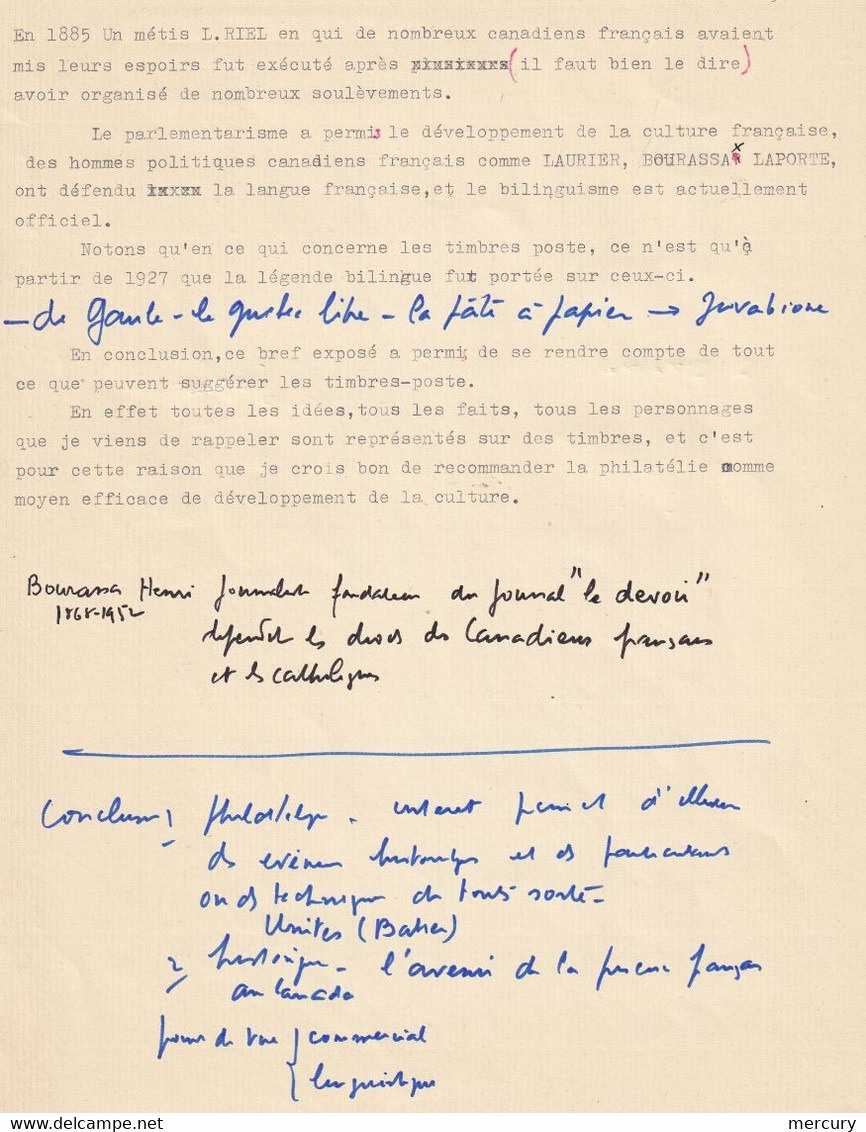 En 1885 Un métis L.RIEL en qui de nombreux canadiens français avaient
mis leurs espoirs fut exécuté après (il faut bien le dire)
avoir organisé de nombreux soulèvements.
Le parlementarisme a permis le développement de la culture française,
des hommes politiques canadiens français comme LAURIER, BOURASSA LAPORTE,
ont défendu la langue française,et le bilinguisme est actuellement
officiel.
Notons qu'en ce qui concerne les timbres poste, ce n'est qu'à
partir de 1927 que la légende bilingue fut portée sur ceux-ci.
- de Gaule - le quebec libre - la pâte à papier →
En conclusion,ce bref exposé a permis de se rendre compte de tout
ce que peuvent suggérer les timbres-poste.
En effet toutes les idées,tous les faits, tous les personnages
que je viens de rappeler sont représentés sur des timbres, et c'est
pour cette raison que je crois bon de recommander la philatélie comme
moyen efficace de développement de la culture.
Bourassa Henri Journaliste fondateur du journal "le devoir"
1868-1952
défendit les droits des Canadiens français
et les catholiques
Conclusion 1 philatélique - interet permet d'
des historiques et des
ou des techniques de toute sorte -
Unites (Bateau)
2 historique - l'avenir de la français
au Canada
point de vue { commercial
linguistique
mercury